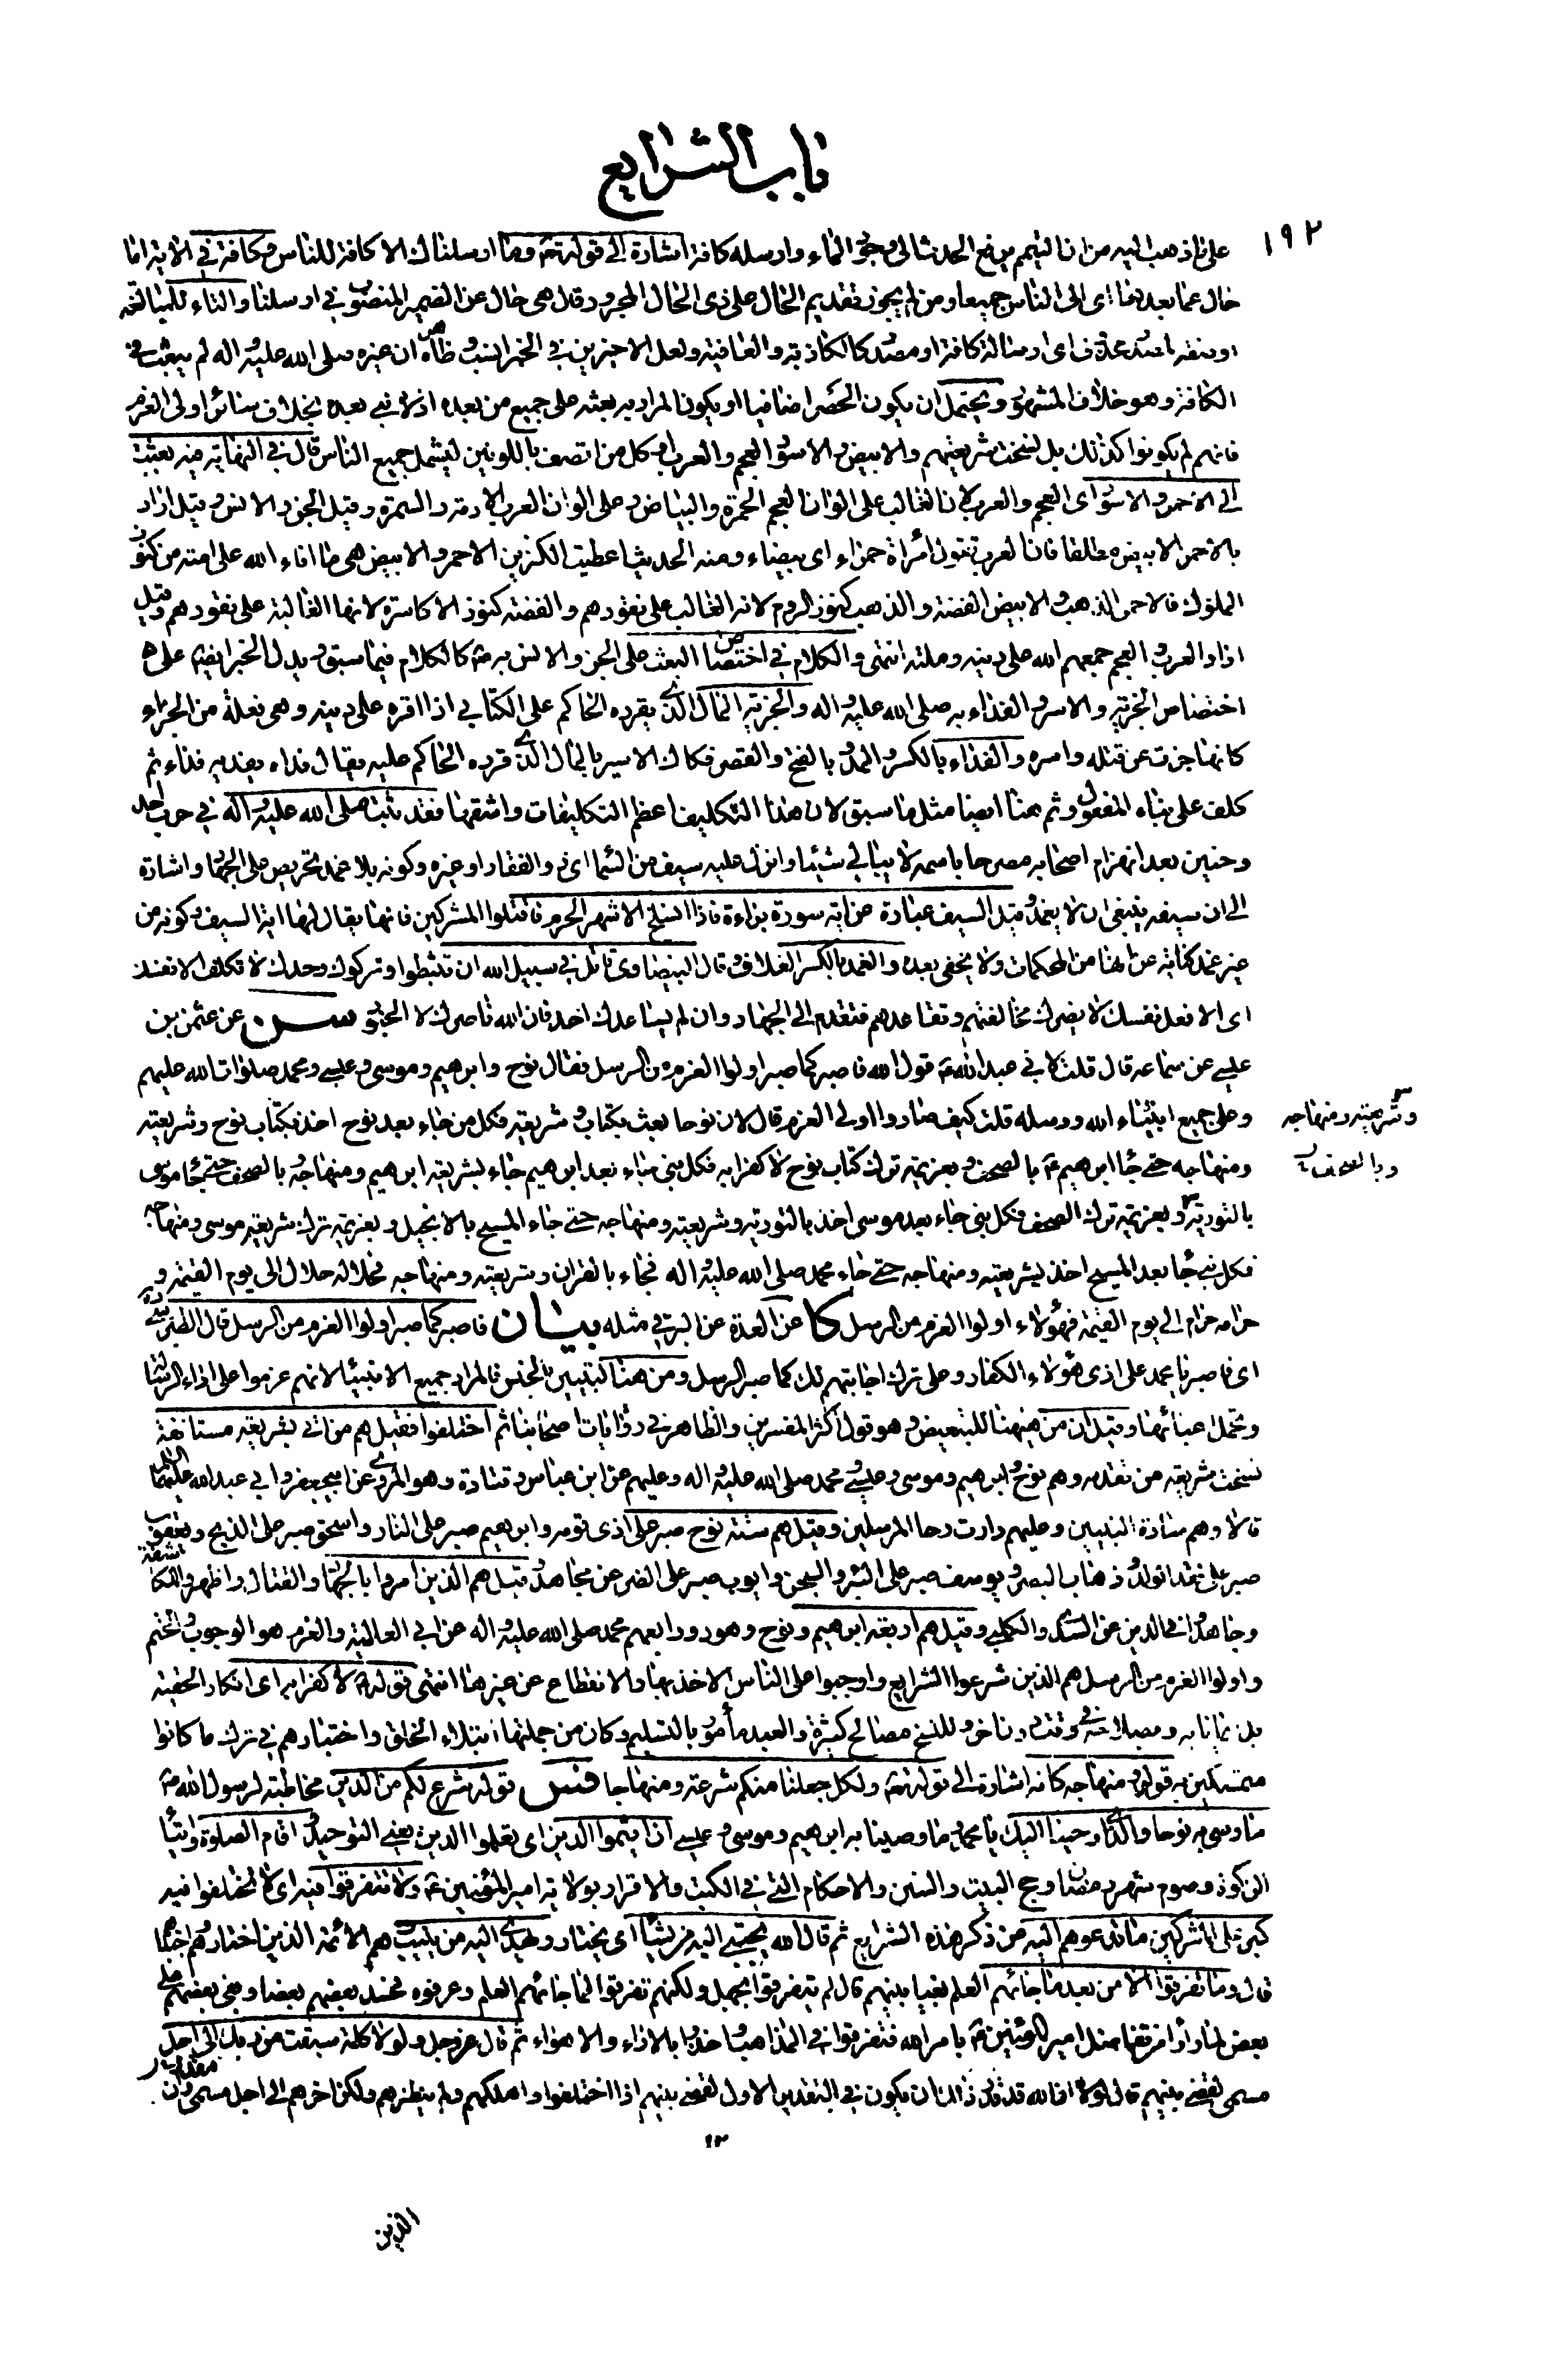 باب الشرايع
١٩٢
على ما ذهب اليه من ان التيمم يرفع الحدث الى وجود الماء وارسله كافة اشارة الى قوله تعالى وما ارسلناك الا كافة للناس وكافة في الاية اما
حال عما بعدها اى الى الناس جميعا ومن لم يجوز تقديم الحال على ذى الحال المجرور قال هى حال عن الضمير المنصوب في ارسلنا والتاء للمبالغة
او صفة لمصدر محذوف اى ارسالة كافة او مصدر كالكاذبة والعافية ولعل الاخيرين في الخبر انسب وظاهره ان غيره صلى الله عليه واله لم يبعث في
الكافة وهو خلاف المشهور ويحتمل ان يكون الحصر اضافيا او يكون المراد به بعثه على جميع من بعده اذ لا نبي بعده بخلاف سائر اولى العزم
فانهم لم يكونوا كذلك بل نسخت شريعتهم والابيض والاسود العجم والعرب او كل من اتصف باللونين ليشمل جميع الناس قال في النهاية فيه بعثت
الى الاحمر والاسود اى العجم والعرب لان الغالب على الوان العجم الحمرة والبياض وعلى الوان العرب الادمة والسمرة وقيل الجن والانس وقيل اراد
بالاحمر الابيض مطلقا فان العرب تقول امرأة حمراء اى بيضاء ومنه الحديث اعطيت الكنزين الاحمر والابيض هى ما افاء الله على امته من كنوز
الملوك فالاحمر الذهب والابيض الفضة والذهب كنوز الروم لانه الغالب على نقودهم والفضة كنوز الاكاسرة لانها الغالبة على نقودهم وقيل
اراد العرب والعجم جمعهم الله على دينه وملته انتهى والكلام في اختصاص البعث على الجن والانس به ص كالكلام فيما سبق ويدل الخبر ايضا على
اختصاص الجزية والاسر والفداء به صلى الله عليه واله والجزية المال الذى يقرره الحاكم على الكتابي اذا اقره على دينه وهى فعلة من الجزاء
كانها جزت عن قتله واسره والفداء بالكسر والمد وبالفتح والقصر فكاك الاسير بالمال الذى قرره الحاكم عليه يقال فداه يفديه فداء ثم
كلف على بناء المفعول وثم هنا ايضا مثل ما سبق لان هذا التكليف اعظم التكليفات واشقها فقد ثبت صلى الله عليه واله في حرب احد
وحنين بعد انهزام اصحابه مصرحا باسمه لا يبالي شيئا وانزل عليه سيف من السماء اى ذو الفقار او غيره وكونه بلا غمد تحريص على الجهاد واشارة
الى ان سيفه ينبغي ان لا يغمد وقيل السيف عبارة عن اية سورة براءة فاذا انسلخ الاشهر الحرم فاقتلوا المشركين فانها يقال لها اية السيف وكونه من
غير غمد كناية عن انها من المحكمات ولا يخفى بعده والغمد بالكسر الغلاف وقال البيضاوى قاتل في سبيل الله ان تثبطوا وتركوك وحدك لا تكلف الا نفسك
اى الا فعل نفسك لا يضرك مخالفتهم وتقاعدهم فتقدم الى الجهاد وان لم يساعدك احد فان الله ناصرك لا الجنود سن عن عثمن بن
عيسى عن سماعة قال قلت لابي عبد الله ع قول الله فاصبر كما صبر اولوا العزم من الرسل فقال نوح وابرهيم وموسى وعيسى ومحمد صلوات الله عليهم
وعلى جميع انبياء الله ورسله قلت كيف صاروا اولى العزم قال لان نوحا بعث بكتاب وشريعة فكل من جاء بعد نوح اخذ بكتاب نوح وشريعته
ومنهاجه حتى جاء ابرهيم ع بالصحف وبعزيمة ترك كتاب نوح لا كفرا به فكل نبى جاء بعد ابرهيم جاء بشريعة ابرهيم ومنهاجه وبالصحف حتى جاء موسى
وشريعته ومنهاجه
وبالصحف
بالتورية وبعزيمة ترك الصحف فكل نبى جاء بعد موسى اخذ بالتورية وشريعته ومنهاجه حتى جاء المسيح بالانجيل وبعزيمة ترك شريعة موسى ومنهاجه
فكل نبى جاء بعد المسيح اخذ بشريعته ومنهاجه حتى جاء محمد صلى الله عليه واله فجاء بالقران وشريعته ومنهاجه فحلاله حلال الى يوم القيمة و
حرامه حرام الى يوم القيمة فهؤلاء اولوا العزم من الرسل كا عن العدة عن البرقي مثله بيان فاصبر كما صبر اولوا العزم من الرسل قال الطبرسى ره
اى فاصبر يا محمد على اذى هؤلاء الكفار وعلى ترك اجابتهم لك كما صبر الرسل ومن هنا لتبيين الجنس فالمراد جميع الانبياء لانهم عزموا على اداء الرسالة
وتحمل اعبائها وقيل ان من هيهنا للتبعيض وهو قول اكثر المفسرين والظاهر في روايات اصحابنا ثم اختلفوا فقيل هم من اتى بشريعة مستانفة
نسخت شريعة من تقدمه وهم نوح وابرهيم وموسى وعيسى ومحمد صلى الله عليه واله وعليهم عن ابن عباس وقتادة وهو المروى عن ابيجعفر وابي عبد الله عليهما السلام
قالا وهم سادة النبيين وعليهم دارت رحا المرسلين وقيل هم ستة نوح صبر على اذى قومه وابرهيم صبر على النار واسحق صبر على الذبح ويعقوب
صبر على فقد الولد وذهاب البصر ويوسف صبر على البئر والسجن وايوب صبر على الضر عن مجاهد وقيل هم الذين امروا بالجهاد والقتال واظهروا المكاشفة
وجاهدوا في الدين عن السدى والكلبي وقيل هم اربعة ابرهيم ونوح وهود ورابعهم محمد صلى الله عليه واله عن ابي العالية والعزم هو الوجوب والحتم
واولوا العزم من الرسل هم الذين شرعوا الشرايع واوجبوا على الناس الاخذ بها والانقطاع عن غيرها انتهى قوله ع لا كفرا به اى انكار الحقيته
بل ايمانا به وبصلاحه في وقته دون اخر وللنسخ مصالح كثيرة والعبد مأمور بالتسليم وكان من جملتها ابتلاء الخلق واختبارهم في ترك ما كانوا
متمسكين به قوله ومنهاجه كانه اشارة الى قوله تعالى ولكل جعلنا منكم شرعة ومنهاجا فس قوله شرع لكم من الدين مخاطبة لرسول الله ص
ما وصى به نوحا والذى اوحينا اليك يا محمد وما وصينا به ابرهيم وموسى وعيسى ان اقيموا الدين اى تعلموا الدين يعنى التوحيد واقام الصلوة وايتاء
الزكوة وصوم شهر رمضان وحج البيت والسنن والاحكام التى في الكتب والاقرار بولاية امير المؤمنين ع ولا تتفرقوا فيه اى لا تختلفوا فيه
كبر على المشركين ما تدعوهم اليه من ذكر هذه الشرايع ثم قال الله يجتبي اليه من يشاء اى يختار ويهدى اليه من ينيب هم الائمة الذين اختارهم واجتباهم
قال وما تفرقوا الا من بعد ما جائهم العلم بغيا بينهم قال لم يتفرقوا بجهل ولكنهم تفرقوا لما جائهم العلم وعرفوه فحسد بعضهم بعضا وبغى بعضهم على
بعض لما راوا من تفضل امير المؤمنين ع بامر الله فتفرقوا في المذاهب واخذوا بالاراء والاهواء ثم قال عز وجل ولولا كلمة سبقت من ربك الى اجل
مسمى لقضى بينهم قال لولا ان الله قد قدر ذلك ان يكون في التقدير الاول لقضى بينهم اذا اختلفوا واهلكهم ولم ينظرهم ولكن اخرهم الى اجل مسمى وان
١٢
الذين